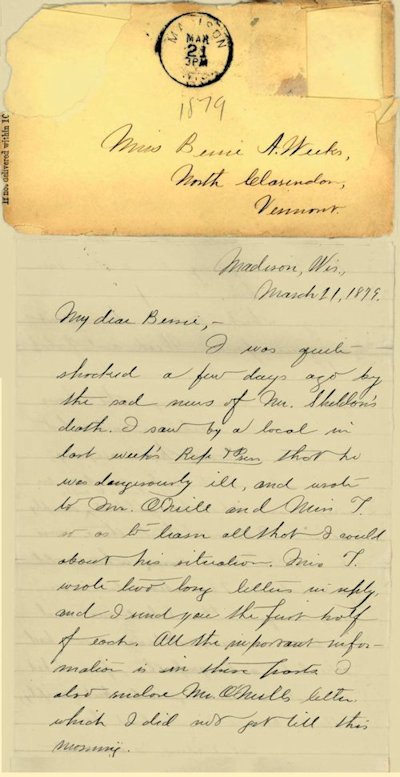 MADISON
MAR
21
3PM
WIS.
1879
If not delivered within 10
Miss Bessie A. Weeks,
North Clarendon,
Vermont.
Madison, Wis.,
March 21, 1879.
My dear Bessie,-
I was quite
shocked a few days ago by
the sad news of Mr. Sheldon's
death. I saw by a local in
last week's Rep. & Pion that he
was dangerously ill, and wrote
to Mr. O'Neill and Miss T.
so as to learn all that I could
about his situation. Miss T.
wrote two long letters in reply,
and I send you the first half
of each. All the important infor-
mation is in these parts. I
also enclose Mr. O'Neill's letter
which I did not get till this
morning.